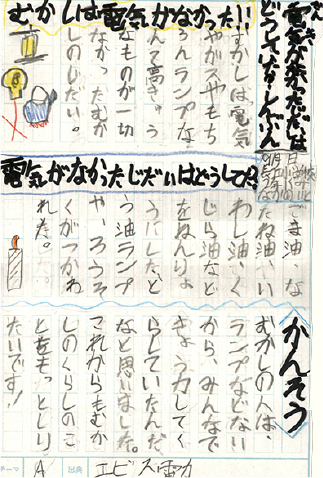 電気が
どうしていた
むかしは電気がなかった!!
むかしは、電気
やガスやもち
ろんランプな
んて高き、う
なものが一切
なかったむか
しのじだい。
電気がなかったじだいはどうしてた?
ごま油 な
たね油、い
わし油、く
じら油など
をねんりょ
うにした、と
う油ランプ
や、ろうそ
くがつかわ
れた。
かんそう
むかしの人は、
ランプなどない
から、みんなで
きょう力してく
らしていたんだ
なと思いました。
これからもむか
しのくらしのこ
ともをもっとしり
たいです!
テーマ A 出典 エビス電力